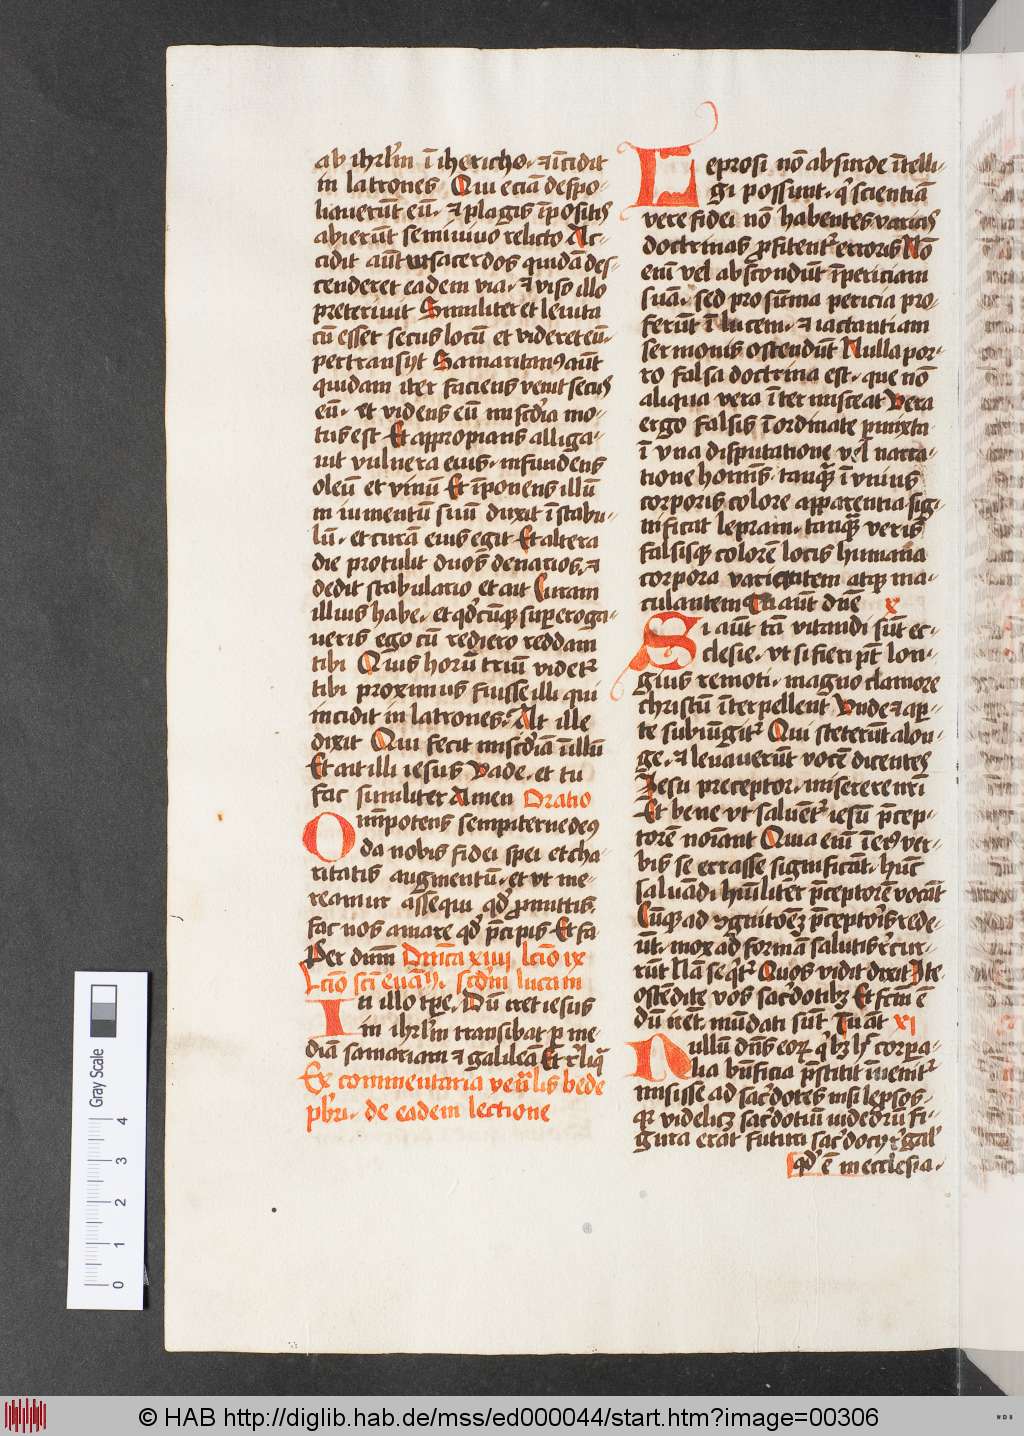 ab ihrl̄m ī ihericho. et īcidit
in latrones Qui eciā despo-
liauerūt eū. et plagis īpositis
abierūt seminiuo relicto Ac-
cidit aūt ut sacerdos quidā des-
cenderet eadem via. et viso illo
preteriuit Similiter et leuita
cū esset secus locū et videret eū.
pertransijt Samaritanꝰ aūt
quidam iter faciens venit secus
eū. et videns eū misc̄dia mo-
tus est Et appropians alliga-
uit vulnera eius. infundens
oleū et vinū Et īponens illū
in iumentū suū duxit ī stabu-
lū. et curā eius egit Et altera
die protulit duos denarios. et
dedit stabulario et ait Curam
illius habe. et qd̄cūqꝫ superoga-
ueris ego cū rediero reddam
tibi Quis horū triū videtr̄
tibi proximus fuisse illi qui
incidit in latrones. At ille
dixit Qui fecit misc̄diā ī illū
Et ait illi iesus Vade. et tu
fac similiter Amen Oratio
Om̄ipotens sempiterne deꝰ
da nobis fidei spei et cha-
ritatis augmentū. et vt me-
reamur assequi qd̄ promittis.
fac nos amare qd̄ p̄cipis Et fa
Per dn̄m Dn̄ica xiiij lc̄io ix
Lc̄io sc̄i euāij. scd̄m lucam
In illo tp̄e. Dū iret iesus
in ihrl̄m transibat per me-
diā samariam et galileā Et rl̄iqa
Ex commentaria ven̄lis bede
pb̄ri. de eadem lectione
Leprosi nō absurde ītelli-
gi possunt. q̄ scientiā
vere fidei nō habentes varias
doctrinas profitentr̄ erroris Nō
enī vel abscondūt īpericiam
suā. sed pro sūma pericia pro-
ferūt ī lucem. et iactantiam
sermonis ostendūt Nulla por-
ro falsa doctrina est. que nō
aliqua vera ītermisceat Vera
ergo falsis īordinate pmixta
ī vna disputatione vel narra-
tione hominis. tanquā ī vnius
corporis colore apparentia. sig-
nificat lepram. tanquā veris
falsisqꝫ colorē locis humana
corpora varietatem atqꝫ ma-
culantem Tu aūt dn̄e x
Si aūt tā vitandi sūt ec-
clesie. vt si fieri pt̄ lon-
gius remoti. magno clamore
christū īterpellent Vnde et ap-
te subiūgitr̄ Qui steterūt alon-
ge. et leuauerūt vocē dicentes
Jesu preceptor. miserere nr̄i
Et bene vt saluentr̄ iesū p̄cep-
torē noīant Quia enī ī eiꝰ ver-
bis se errasse significāt. hūc
saluādi hūiliter p̄ceptorē vocāt
Cūqꝫ ad ꝯgnitōeꝫ p̄ceptoris rede-
ūt. mox ad formā salutis rc̄ur-
rūt Nā seqtr̄ Quos vidit dixit Ite
ostēdite vos sac̄dotibꝫ Et fc̄m ē
dū irēt. mūdati sūt Tu aūt xi
Nullū dn̄s eoꝝ qb̄ꝫ hꝰ corpa-
lia bn̄ficia p̄stitit inenitr̄
misisse ad sac̄dotes nisi lepsos.
qꝛ videlicꝫ sac̄dotiū iudeorū fi-
gura erat futuri sac̄docij rgal̄
qd̄ ē in ecclesia.
© HAB http://diglib.hab.de/mss/ed000044/start.htm?image=00306
Gray Scale
0 1 2 3 4